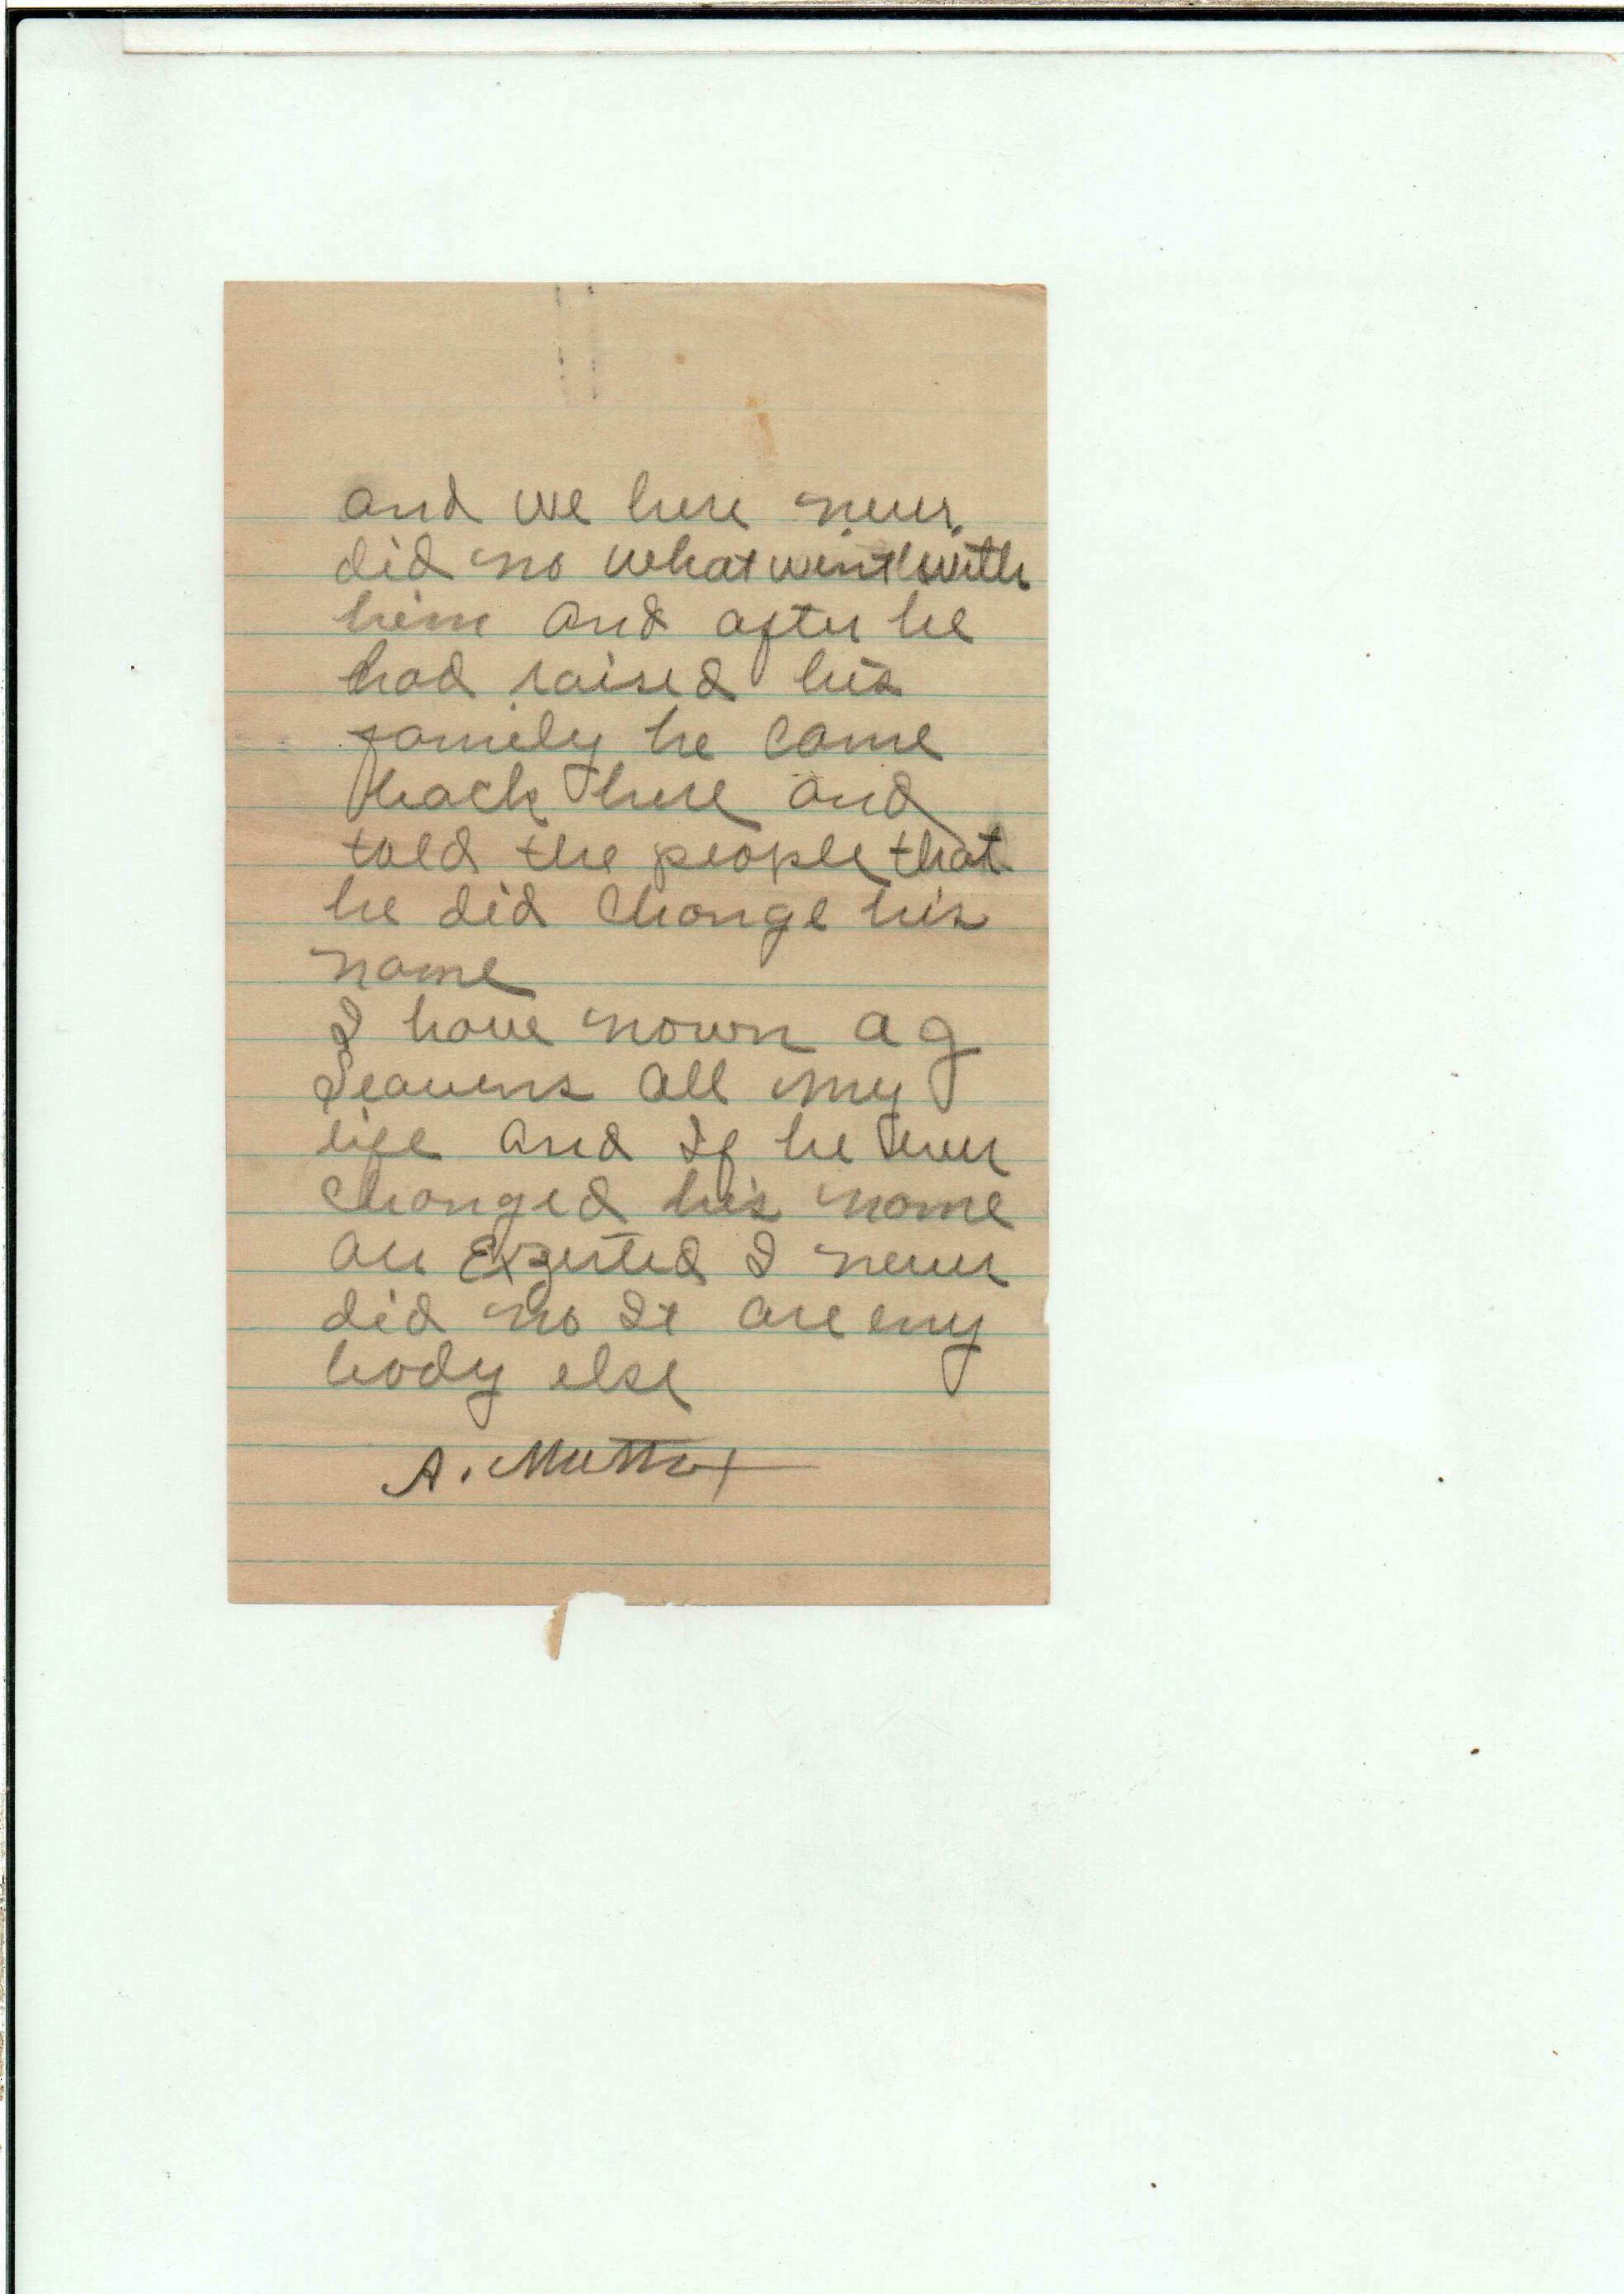 and we here never
did no what went with
him and after he
had raised his
family he come
back here and
told the people that
he did change his
name
I have nown a g
Seavers all my
life and If he ever
changed his name
are Exzerted I never
did no It are eny
body else
A. Mattox